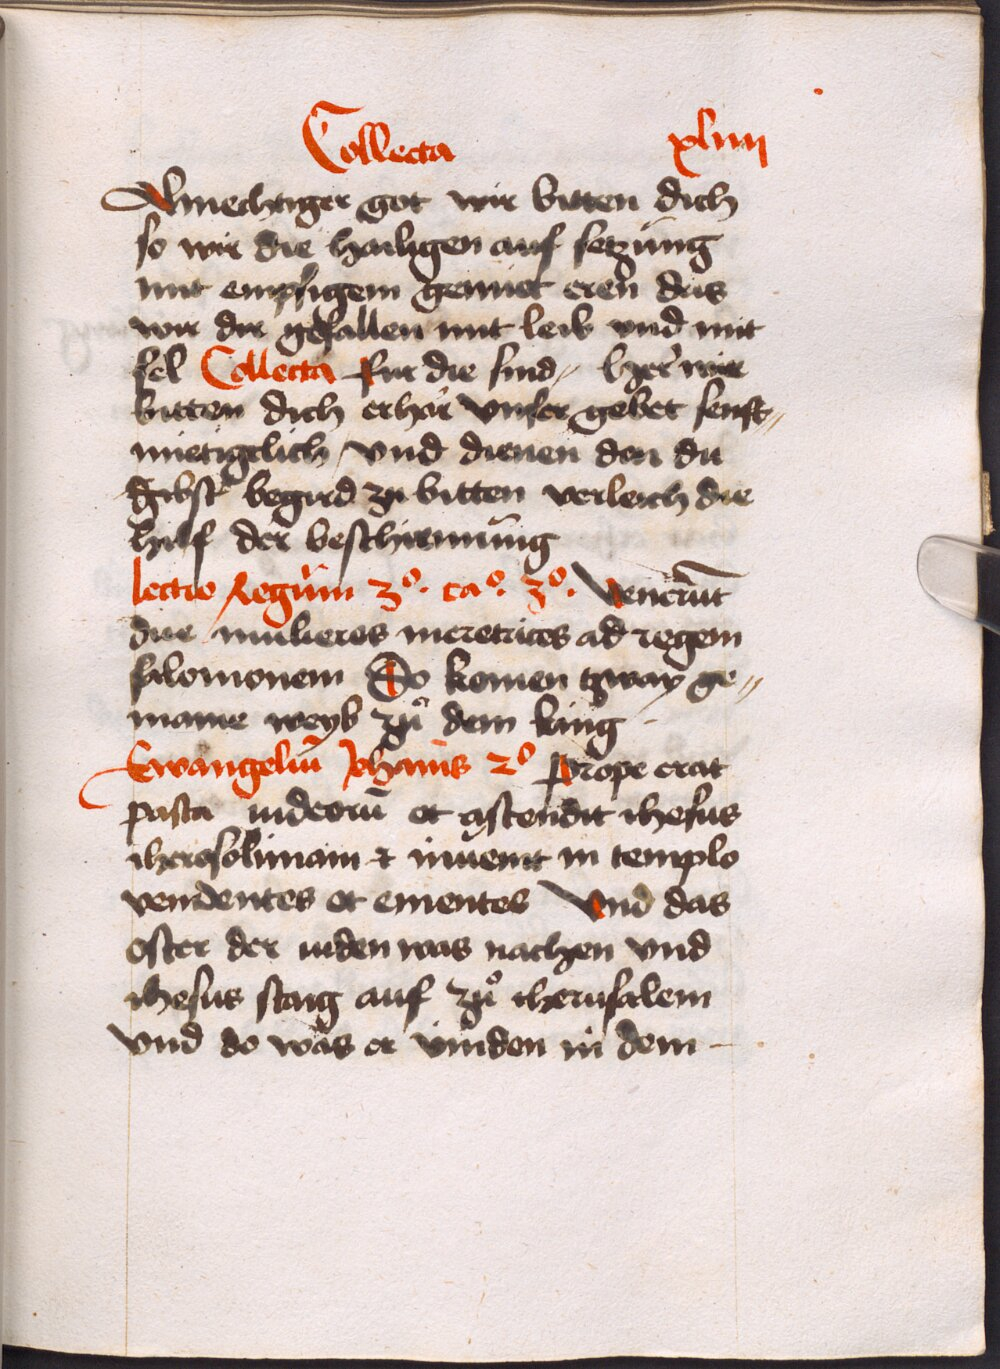 Collecta xliiii
Almechtiger got wir bitten dich
so wir die hailigen auf setzŭng
mit empsigem gemiet eren das
wir dir gefallen mit leib vnd mit
sel Collecta fur die sind〃 her wir
bitten dich erhör vnser gebet senft〃
mietigclich / vnd dienen den du
gibst begird zu bitten verleich die
hilf der beschirmŭng
lectio Regŭm 3º. caº. 3º. Venerūt
due mulieres meretrices ad regem
salomonem Do komen tzway ge〃
maine weyb zuͦ dem king
Ewangeliū Johanīs 2º Prope erat
pasca iudeorū et ascendit ihesus
iherosolimam & inuenit in templo
vendentes et ementes Vnd das
oster der iuden was nachen vnd
ihesus staig auf zuͦ iherusalem
vnd do was er vinden in dem